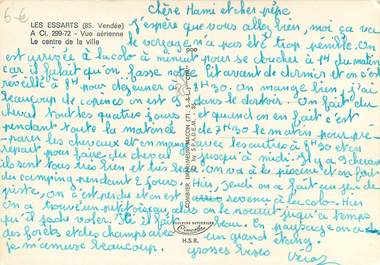 5€
LES ESSARTS (85. Vendée)
A CI. 299-72 - Vue aérienne
Le centre de la ville
Chère Mami et cher pépé
J'espère que vous allez bien, moi ça va
le voyage n'a pas été trop pénible. On
est arrivée à la colo à minuit pour se coucher à 1H du matin
car il fallait qu'on fasse notre lit avant de dormir et on s'est
réveillé à 8H pour déjeuner à 8H30. On mange bien, j'ai
beaucoup de copines on est 9 dans le dortoir. On fait du
cheval toutes quatres jours et quand on en fait c'est
pendant toute la matinée de 7H30 le matin pour
les chevaux et on mange avec les autres à 8H30 et on
repart pour faire du cheval jusqu'à midi. Il y a 9 chevaux
ils sont tous très bien et très beaux on va à la piscine et on fait
du camping pendant 2 jours. Hier, Jeudi on a fait un jeu de
piste, on s'est perdu et on est revenu à la colo. Hier
on a trouvé un petit oiseau alors on le nourrit jusqu'à temps
qu'il sache voler. Ici il fait beau. En paysage on a
des forêts et des champs avec un grand étang
je m'amuse beaucoup. grosses bises
COMBIER IMPRIMEUR MACON (71. S.-&-L.)
by S.P.A.D.E.M.
Combier
H.S.R.